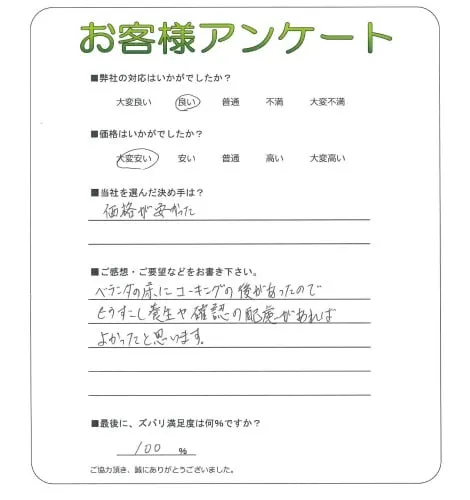 お客様アンケート
■弊社の対応はいかがでしたか？
大変良い 良い 普通 不満 大変不満
■価格はいかがでしたか？
大変安い 安い 普通 高い 大変高い
■当社を選んだ決め手は？
価格が安かった
■ご感想・ご要望などをお書き下さい。
ベランダの床にコーキングの後があったので
もうすこし養生や確認の配慮があれば
よかったと思います。
■最後に、ズバリ満足度は何％ですか？
100 ％
ご協力頂き、誠にありがとうございました。